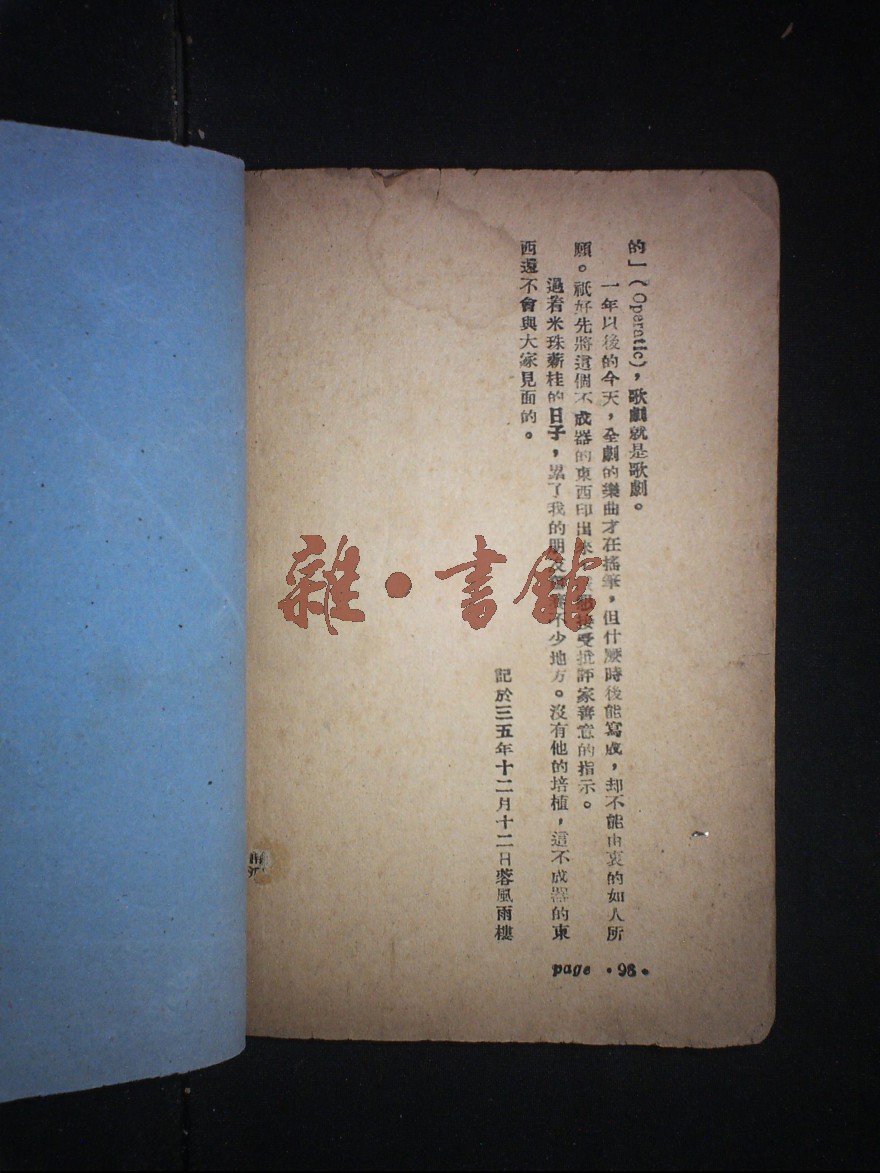 的」(Operatic)，歌劇就是歌劇。
一年以後的今天，全劇的樂曲才在搖筆，但什麼時後能寫成，却不能由衷的如人所
願。祇好先將這個不成器的東西印出來，接受批評家善意的指示。
過着米珠薪桂的日子，累了我的朋友不少地方。沒有他的培植，這不成器的東
西還不會與大家見面的。
記於三五年十二月十二日蓉風雨樓
page •98•
雜•書館